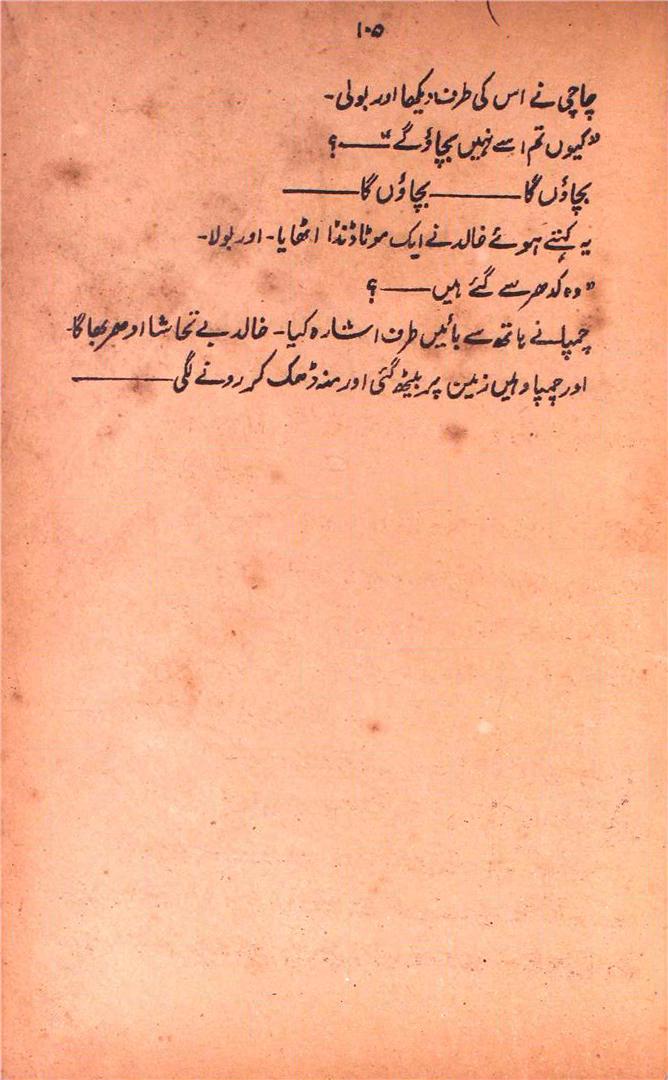 ۱۰۵
چاچی نے اس کی طرف دیکھا اور بولی۔
"کیوں تم اسے نہیں بچاؤ گے"——؟
بچاؤں گا———بچاؤں گا———
یہ کہتے ہوئے خالد نے ایک موٹا ڈنڈا اٹھایا۔ اور بولا۔
"وہ کدھر سے گئے ہیں——؟
چمپا نے ہاتھ سے بائیں طرف اشارہ کیا۔ خالد بے تحاشا ادھر بھاگا
اور چمپا وہیں زمین پر بیٹھ گئی اور منہ ڈھک کر رونے لگی———